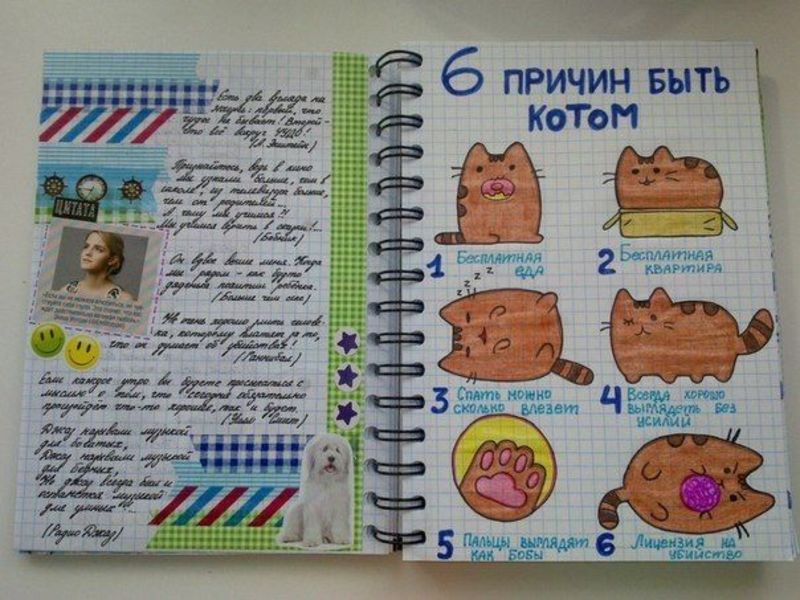 Есть два взгляда на
жизнь: первый, что
чудес не бывает! Второй-
что всё вокруг ЧУДО!
(А. Эйнштейн)
Признайтесь, ведь в кино
мы узнали больше, чем в
школе, из телевизора больше,
чем от родителей...
А чему мы учимся?!
Мы учимся верить в сказки!...
ЦИТАТА
Он вдвое выше меня. Когда
мы рядом - как будто
дяденька похитил ребёнка.
(Больше чем секс)
Не очень хорошо злить челове-
ка, которому платят за то,
что он думает об убийствах!
(Ганнибал)
Если каждое утро вы будете просыпаться с
мыслью о том, что сегодня обязательно
произойдёт что-то хорошее, так и будет.
(Уилл Смит)
Джаз называли музыкой
для богатых,
Джаз называли музыкой
для бедных,
Но джаз всегда был и
останется музыкой
для умных"...
(Радио Джаз)
6 ПРИЧИН БЫТЬ
КОТОМ
1 Бесплатная
еда
2 Бесплатная
квартира
z z z
3 Спать можно
сколько влезет
4 Всегда хорошо
выглядеть без
усилий
5 Пальцы выглядят
как бобы
6 Лицензия на
убийство